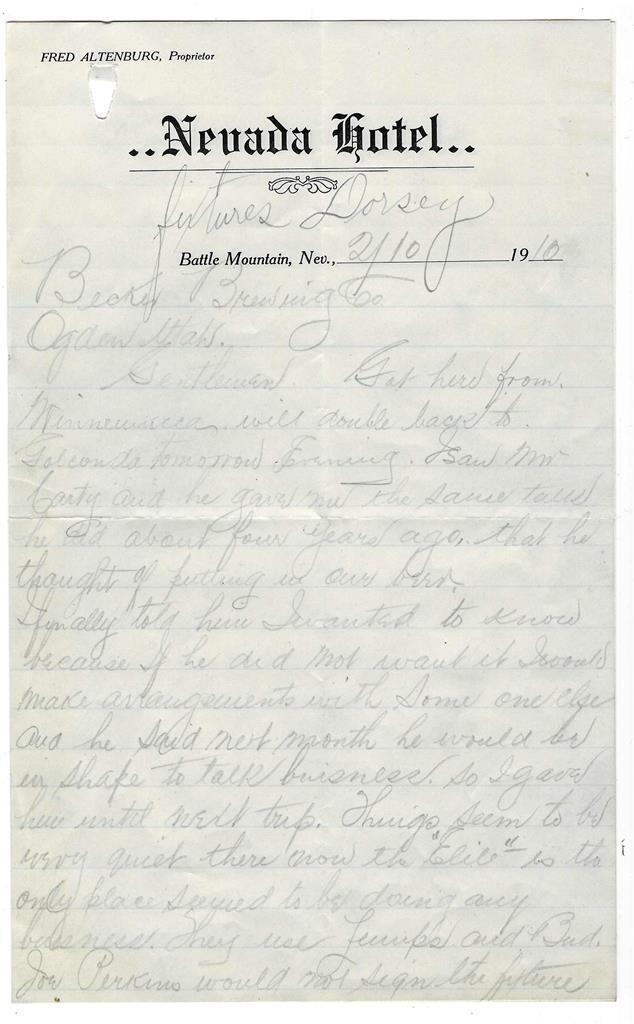 FRED ALTENBURG, Proprietor
..Nevada Hotel..
fixtures Dorsey
Battle Mountain, Nev., 2/10 1910
Becker Brewing Co
Ogden Utah.
Gentlemen. Got here from.
Winnemucca. will double back to.
Golconda tomorrow Evening. I saw Mr
Carty and he gave me the same talk
he did about four years ago, that he
thought of putting in our beer.
I finally told him I wanted to know
because if he did not want it I would
make arrangements with some one else
and he said next month he would be
in shape to talk buisness. so I gave
him until next trip. Things seem to be
very quiet there now the "Elite" is the
only place seemed to be doing any
buisness. They use Lemps and Bud.
Joe Perkins would not sign the fixture